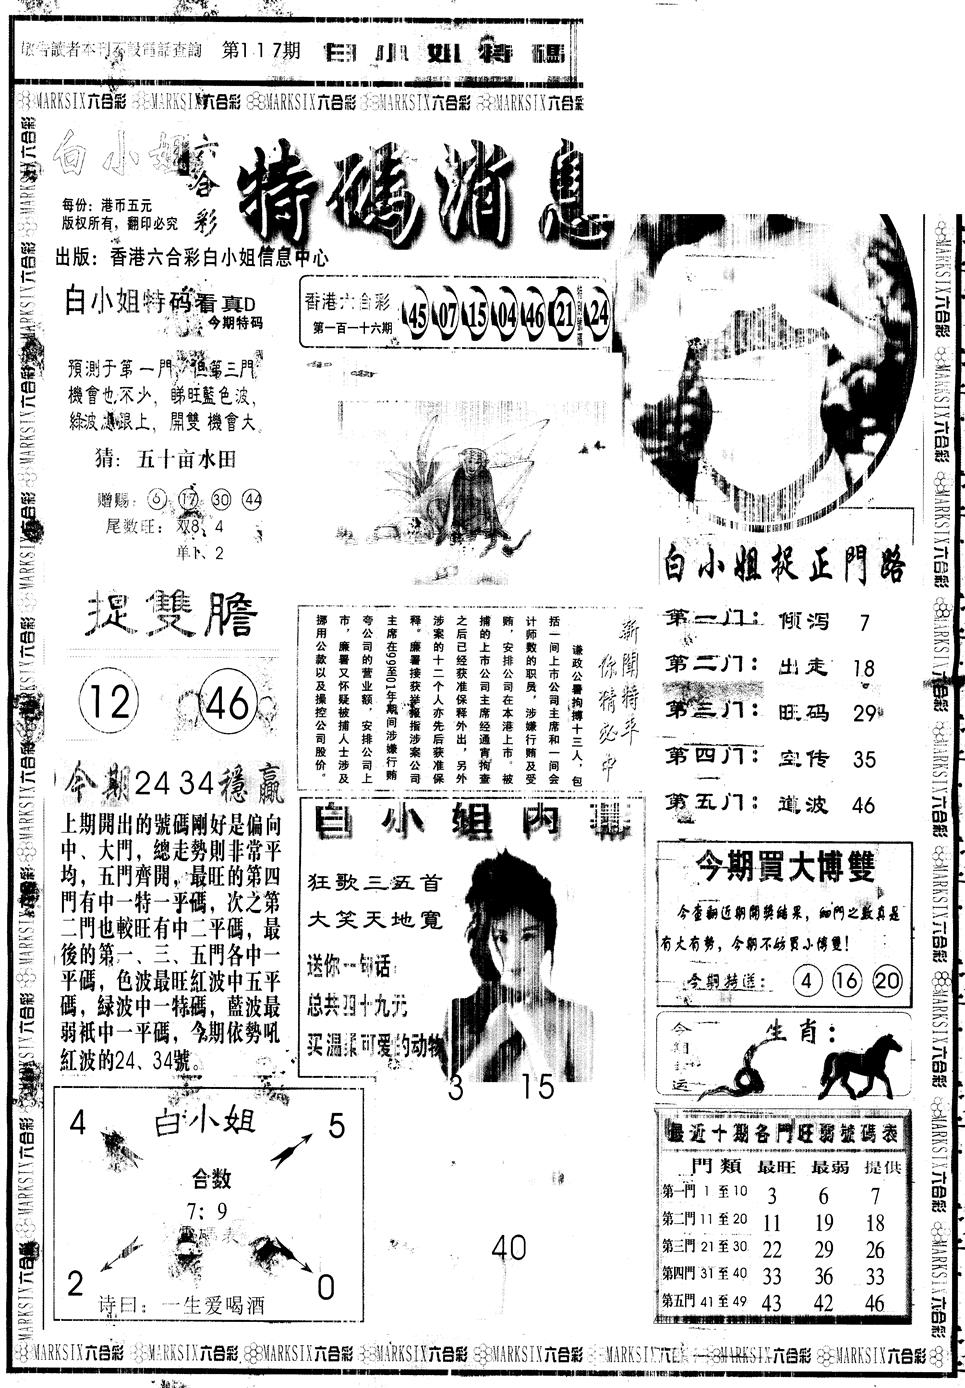 敬告讀者本刊不設電話查詢 第117期 白小姐特碼
MARKSIX六合彩 MARKSIX六合彩 MARKSIX六合彩 MARKSIX六合彩 MARKSIX六合彩
白小姐 六合彩 特碼消息
每份：港币五元
版权所有，翻印必究
出版：香港六合彩白小姐信息中心
白小姐特码看真D
今期特码
預測于第一門，但第三門
機會也不少，睇旺藍色波，
綠波 跟上，開雙機會大。
猜：五十亩水田
赠赐：6 17 30 44
尾数旺：双8、4
单1、2
香港六合彩
第一百一十六期
45 07 15 04 46 21 特別號碼 24
捉雙膽
12 46
今期24 34穩贏
上期開出的號碼剛好是偏向
中、大門，總走勢則非常平
均，五門齊開，最旺的第四
門有中一特一平碼，次之第
二門也較旺有中二平碼，最
後的第一、三、五門各中一
平碼，色波最旺紅波中五平
碼，緑波中一特碼，藍波最
弱衹中一平碼，今期依勢吼
紅波的24、34號。
新聞特平
你猜必中
谦政公署拘搏十三人，包
括一间上市公司主席和一间会
计师数的职员，涉嫌行贿及受
贿，安排公司在本港上市。被
捕的上市公司主席经通宵拘查
之后已经获准保释外出，另外
涉案的十二个人亦先后获准保
释。廉署接获举报指涉案公司
主席在99至01年期间涉嫌行贿
夸公司的营业额，安排公司上
市，廉署又怀疑被捕人士涉及
挪用公款以及操控公司股价。
白小姐内
狂歌三五首
大笑天地寬
送你一句话：
总共四十九元
买温柔可爱的动物
3 15
40
白小姐捉正門路
第一门：倾泻 7
第二门：出走 18
第三门：旺码 29
第四门：空传 35
第五门：道波 46
今期買大博雙
今查翻近期開獎結果，細門之數真是
有大有勢，今期不妨買小博雙！
今期特送：4 16 20
今期 运
生肖：
最近十期各門旺弱號碼表
門類 最旺 最弱 提供
第一門 1 至 10 3 6 7
第二門 11 至 20 11 19 18
第三門 21 至 30 22 29 26
第四門 31 至 40 33 36 33
第五門 41 至 49 43 42 46
4 白小姐 5
合数
7；9
碼表
2 0
诗曰：一生爱喝酒
MARKSIX六合彩 MARKSIX六合彩 MARKSIX六合彩 MARKSIX六合彩 MARKSIX六合彩 MARKSIX六合彩 MARKSIX六合彩 MARKSIX六合彩